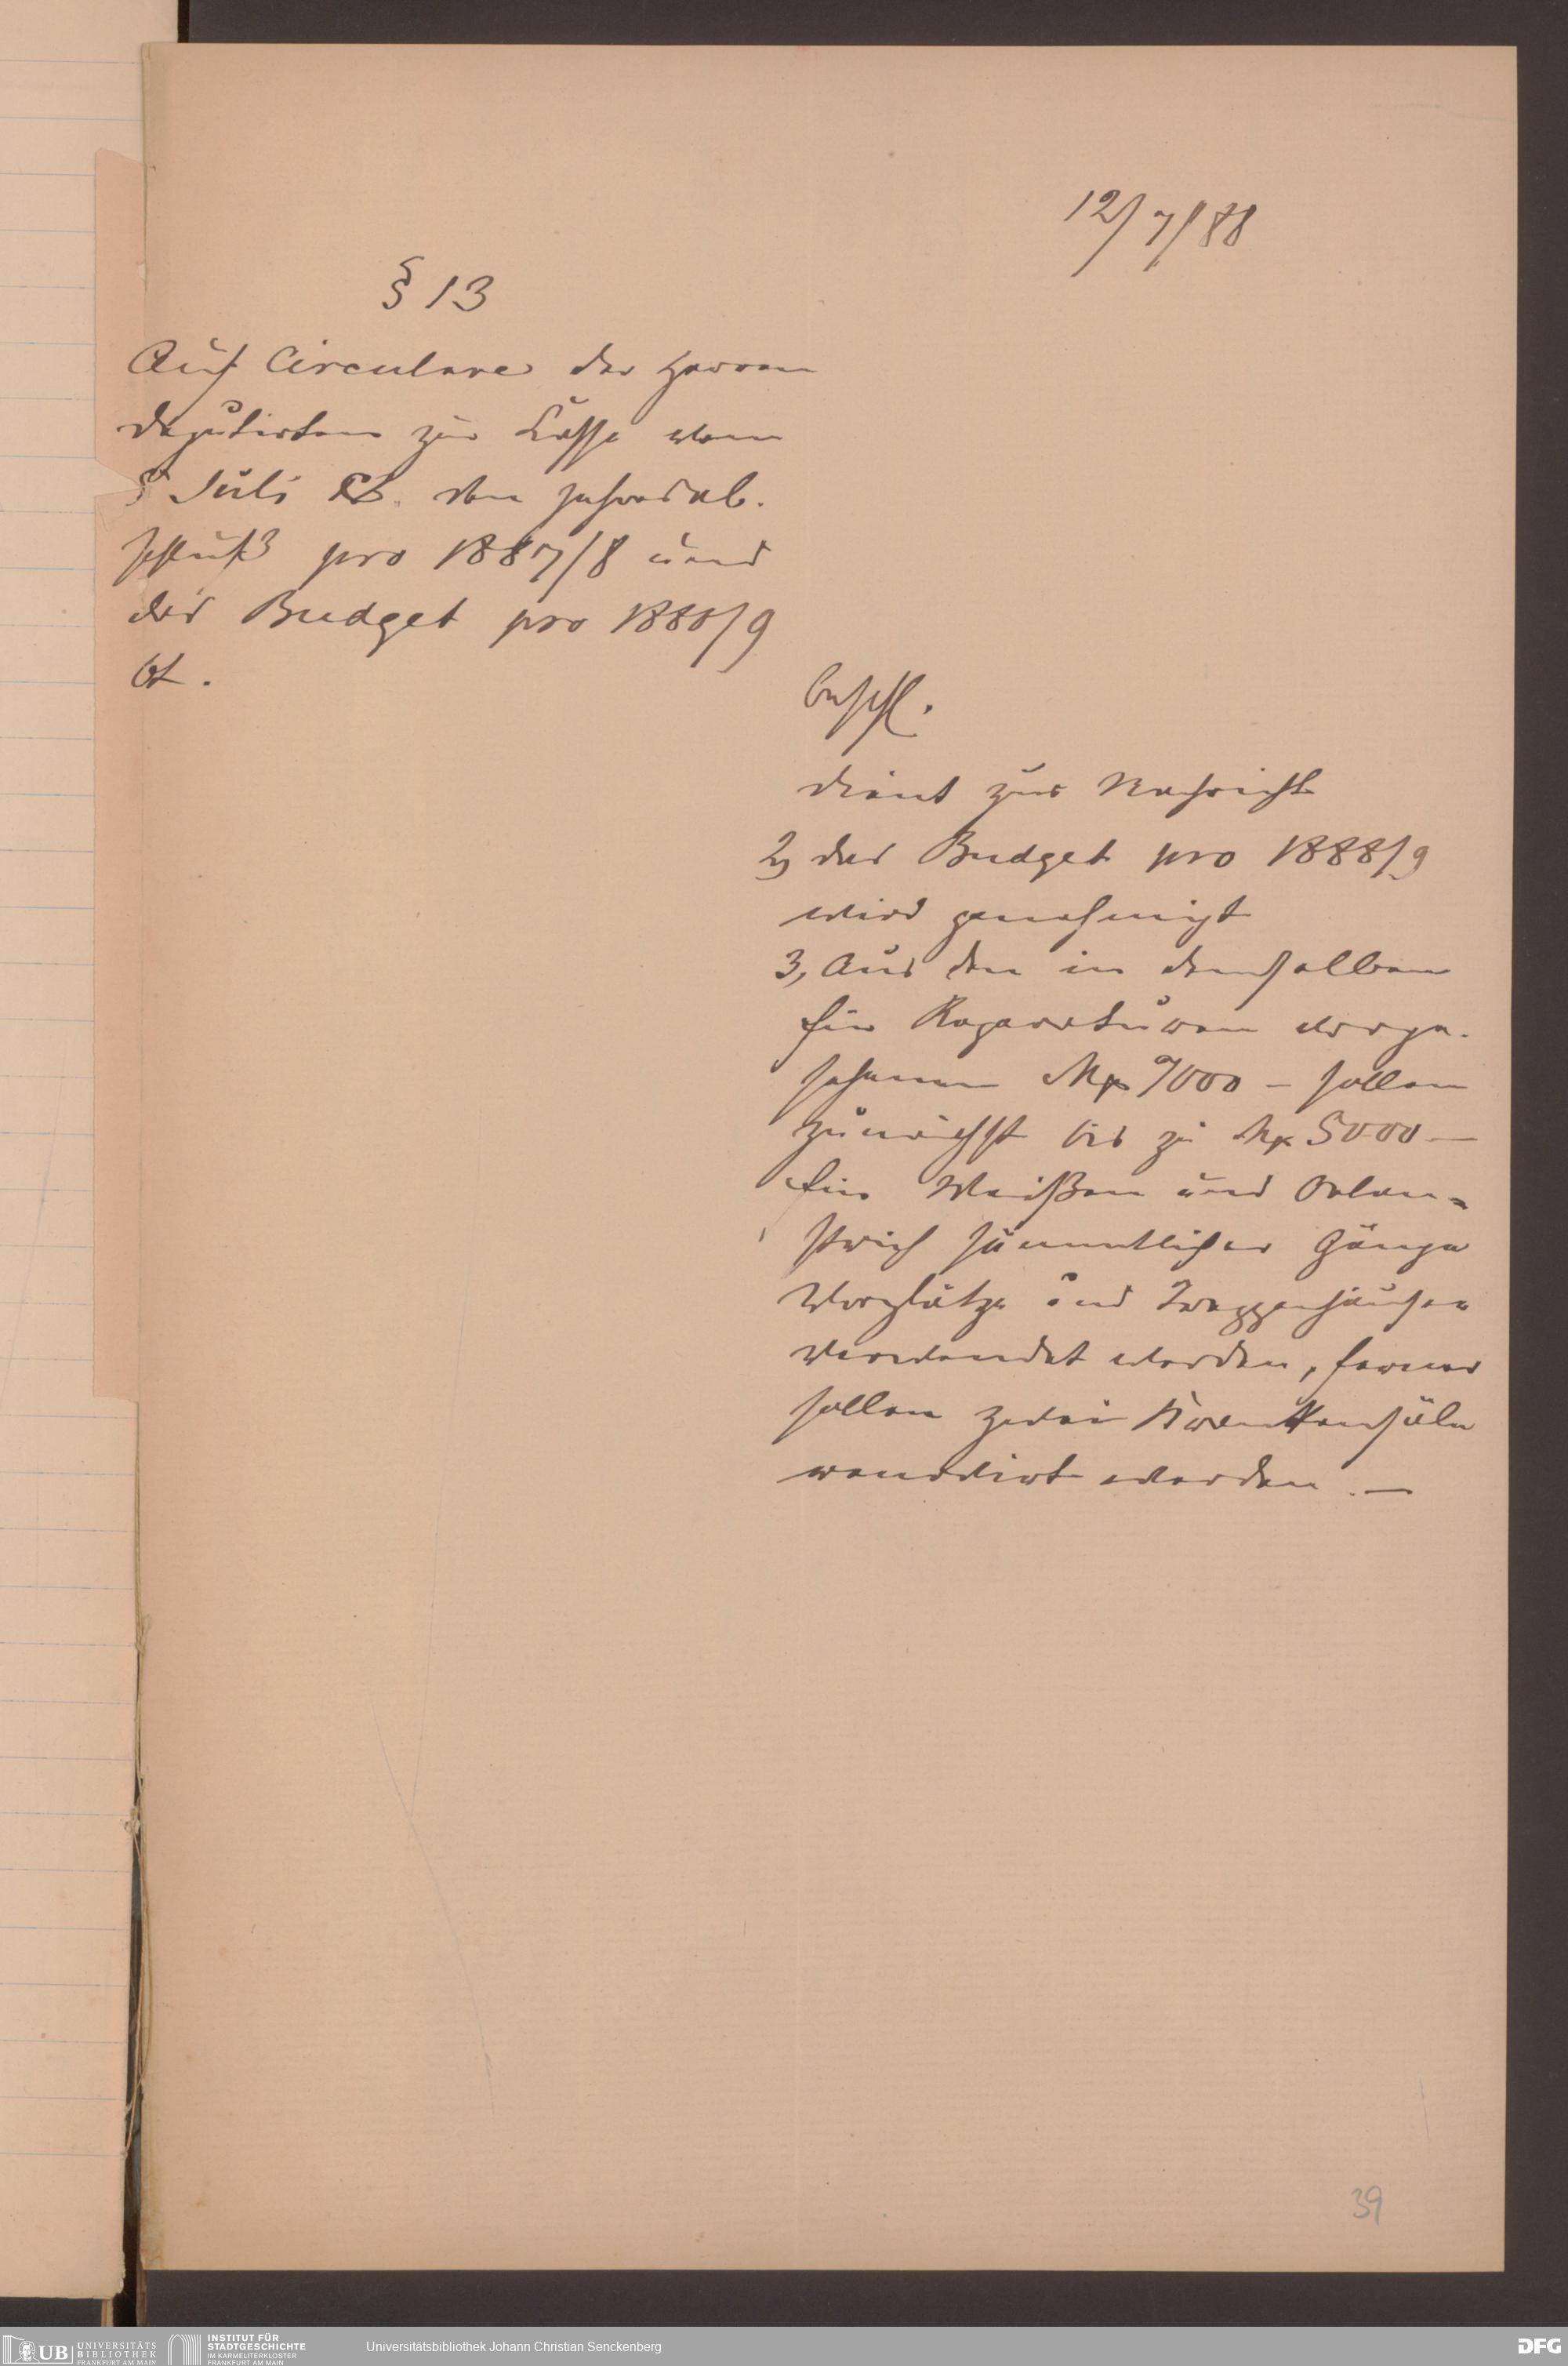 12/7/88
§ 13
Auf Circulare der Herren
Deputirten zur Kasse vom
Juli den Jahresab-
schluß pro 1887/8 und
das Budget pro 1888/9
bt.
beschl.
dient zur Nachricht
2, das Budget pro 1888/9
wird genehmigt
3, Aus den in demselben
für Reparaturen vorge-
sehenen Mk 7000 - sollen
zunächst bis zu Mk 5000 -
für Weißen und Oelan=
strich sämmtlicher Gänge
Vorplätze und Treppenhäuser
verwendet werden, ferner
sollen zwei Krankensäle
renovirt werden. -
39
UB UNIVERSITÄTS
BIBLIOTHEK
FRANKFURT AM MAIN
INSTITUT FÜR
STADTGESCHICHTE
IM KARMELITERKLOSTER
FRANKFURT AM MAIN
Universitätsbibliothek Johann Christian Senckenberg
DFG